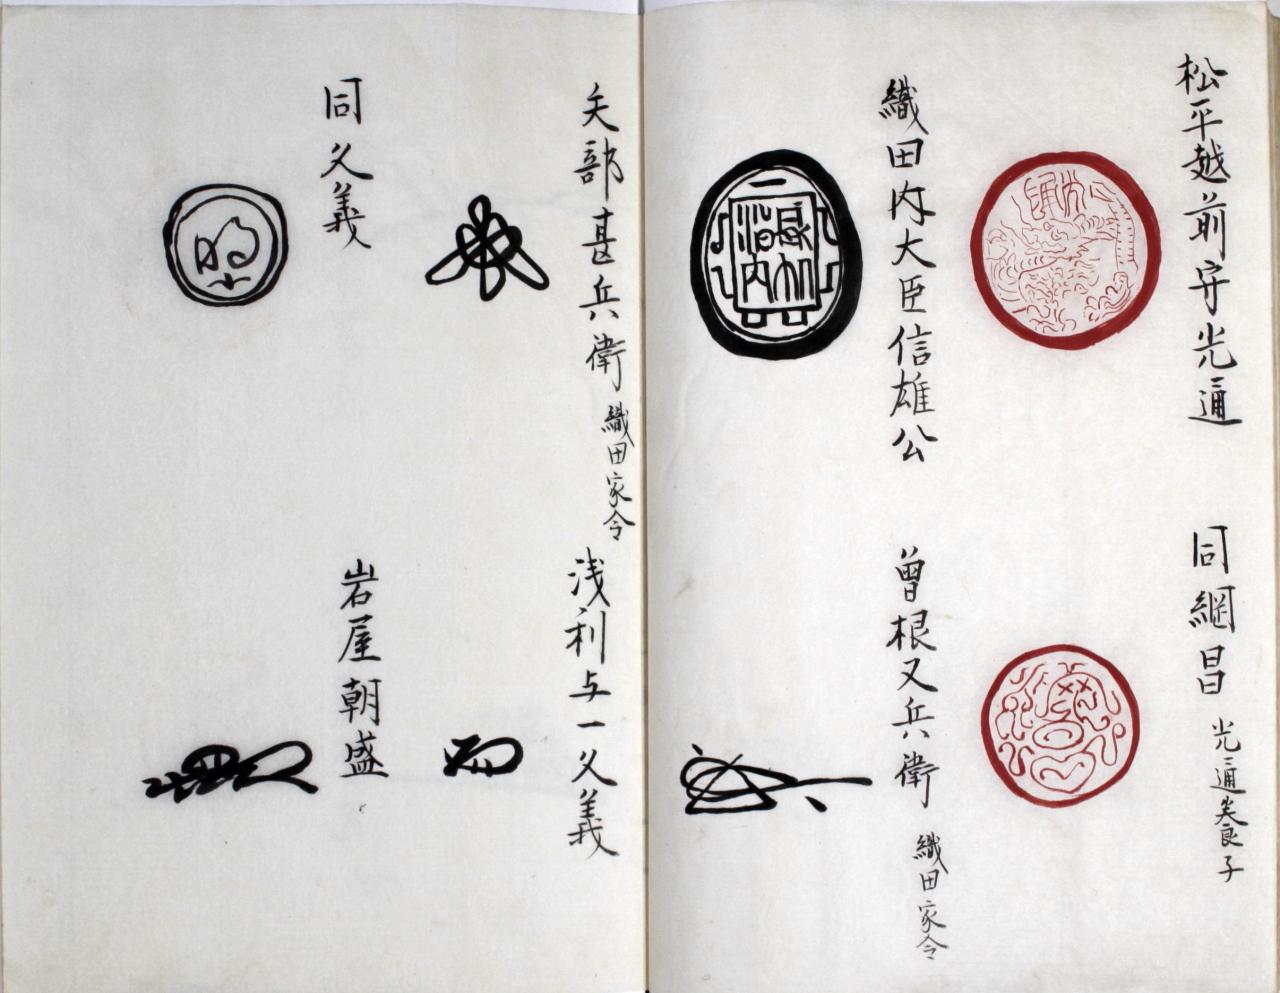 松平越前守光通
同綱昌 光通養子
織田内大臣信雄公
曽根又兵衛 織田家令
矢部甚兵衛 織田家令
浅利与一久義
同久義
岩屋朝盛